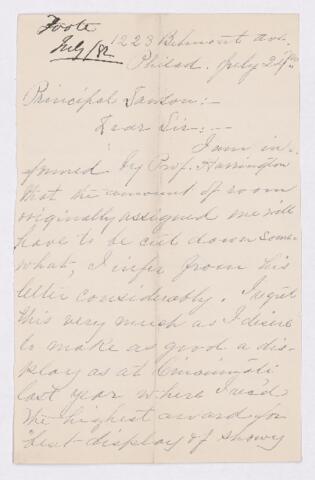 Foote
July/82
1223 Belmont ave.
Philad. July 24th
Principal Dawson:-
Dear Sir:--
I am in-
formed by Prof. Harrington
that the amount of room
originally assigned me will
have to be cut down some-
what, I infer from his
letter considerably. I regret
this very much as I desire
to make as good a dis-
play as at Cincinnati
last year where I rec'd
the highest award for
"best display of showy